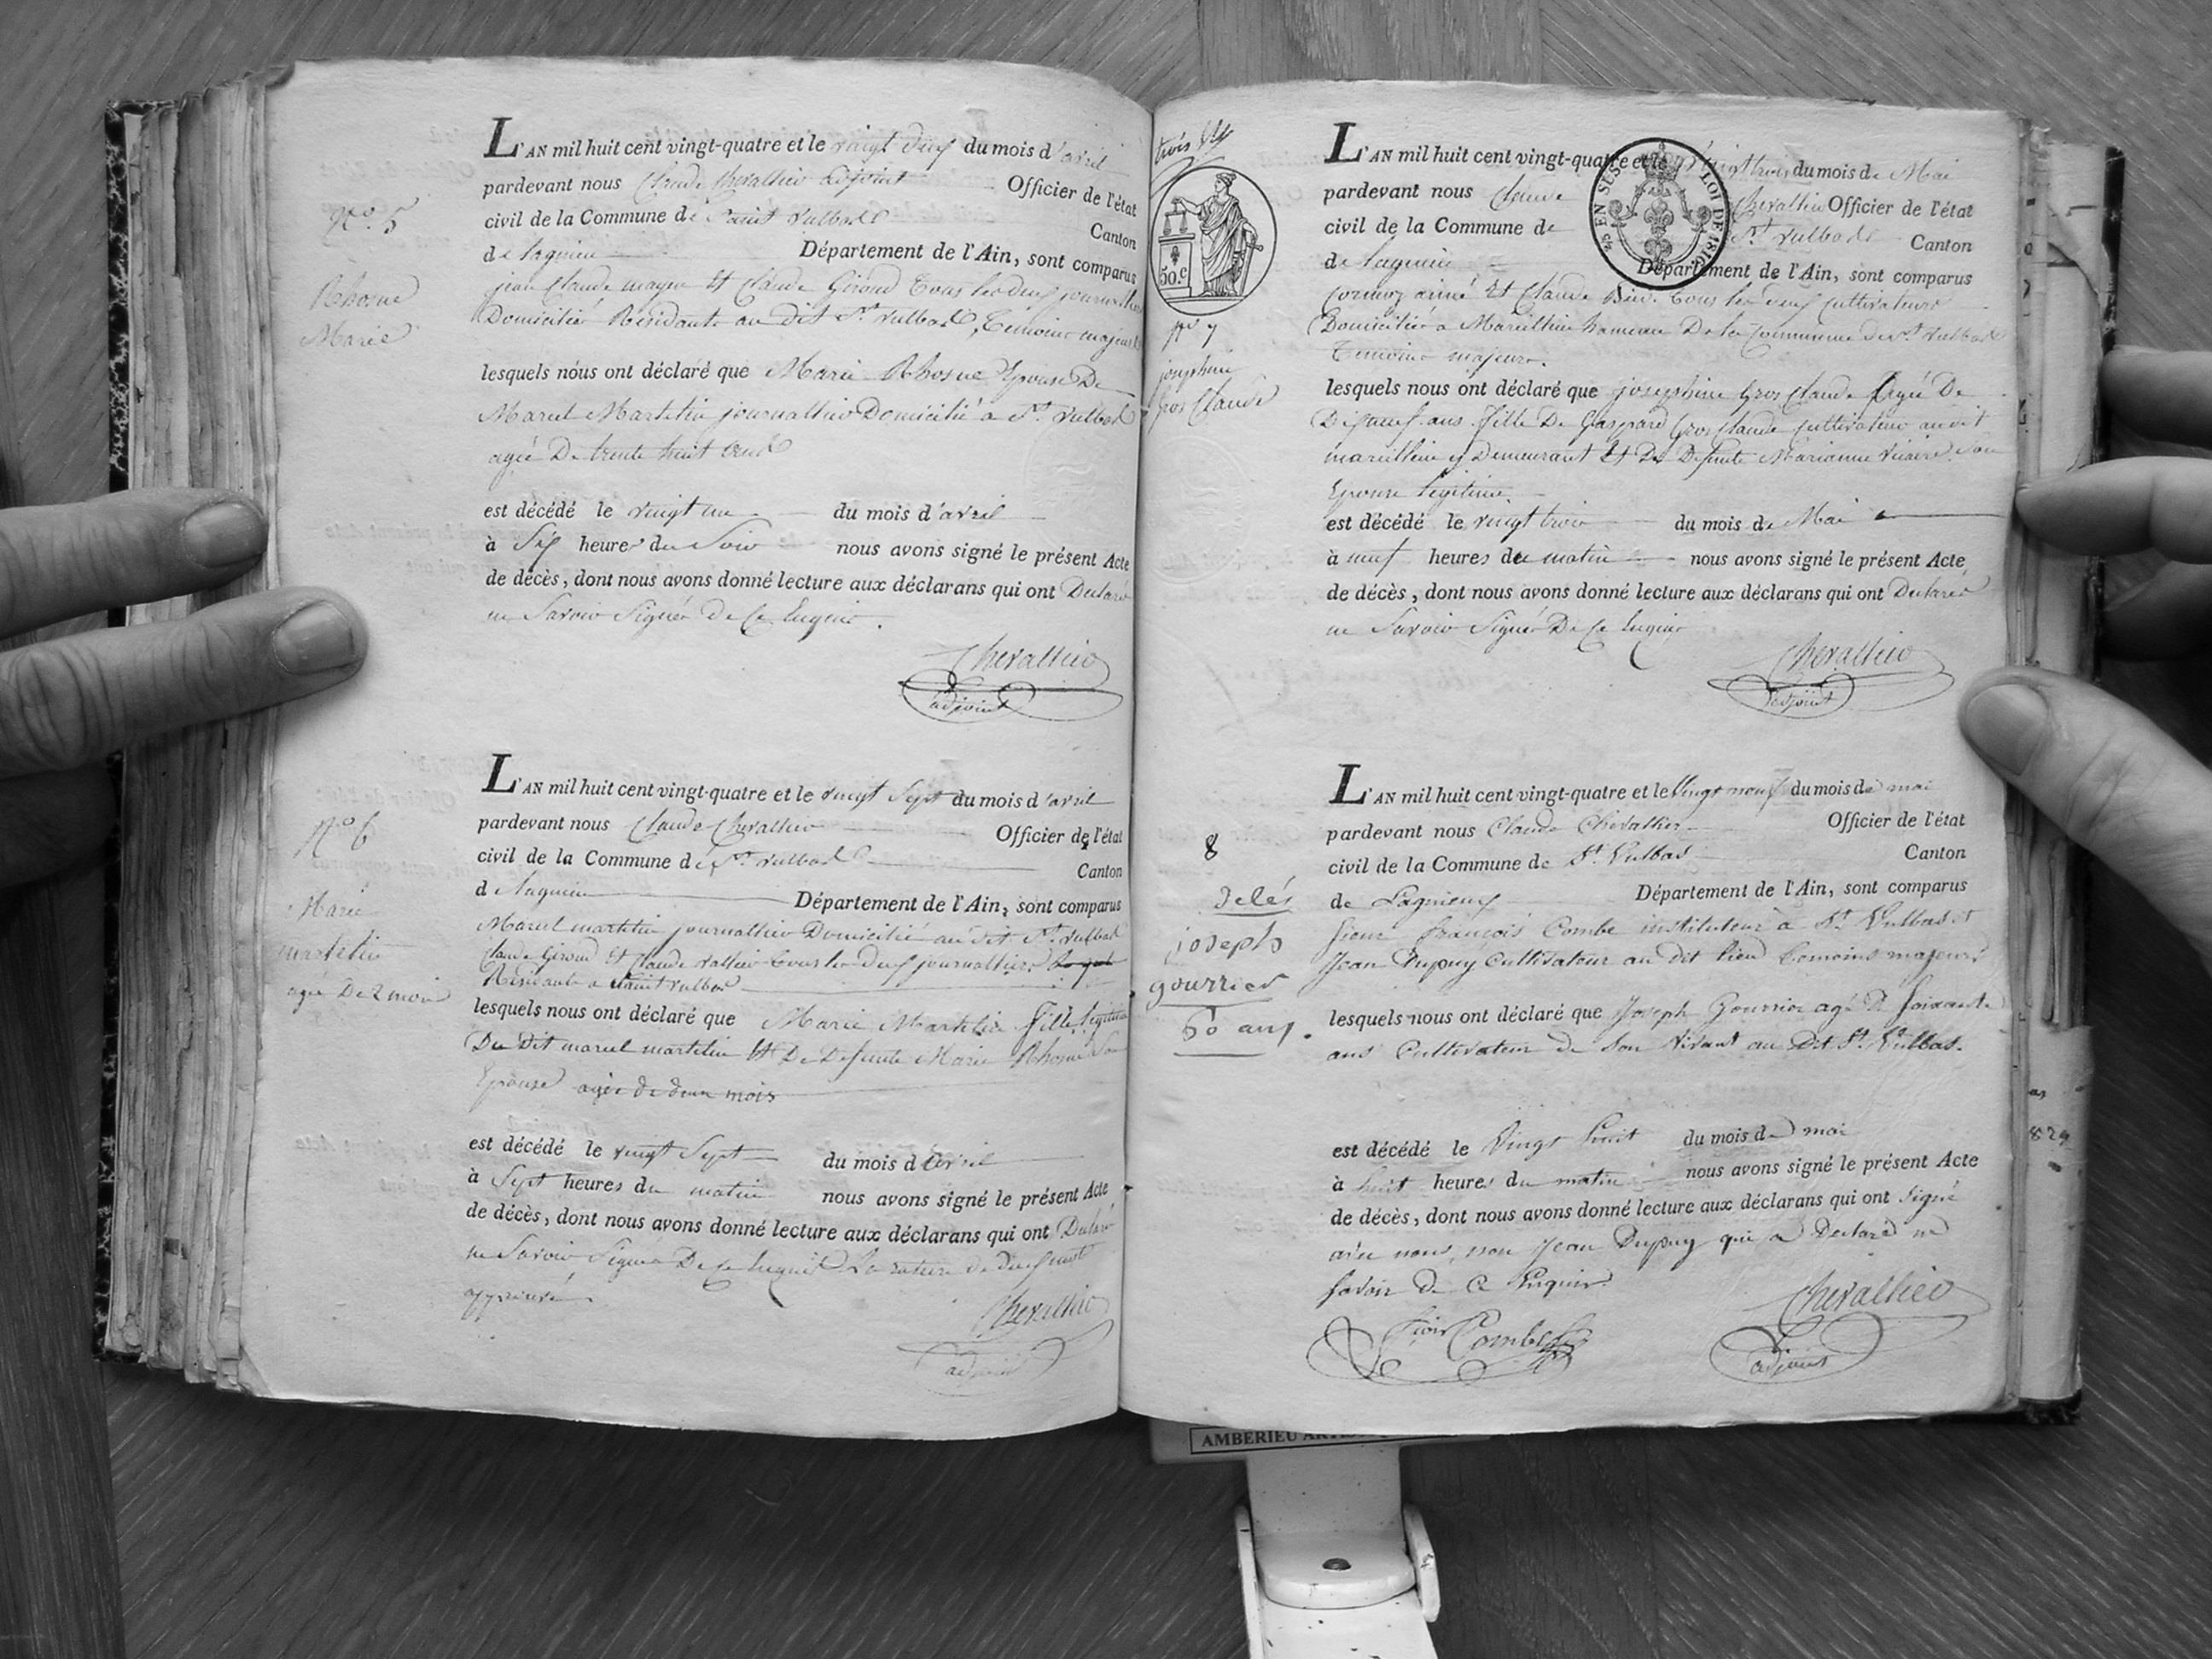 N.o 5
Rhosne
Marie
L'AN mil huit cent vingt-quatre et le vingt deux du mois d'avril
pardevant nous Claude Chevallier adjoint Officier de l'état
civil de la Commune de Saint Vulbas Canton
de lagnieu Département de l'Ain, sont comparus
jean Claude mayeu Et Claude Giroud Tous les deux journalliers
Domicilié Résidants au dit St. Vulbas, Témoins majeurs
lesquels nous ont déclaré que Marie Rhosne Epouse De
Marcel Martelin journallier Domicilié à St. Vulbas
agée De trente huit ans
est décédé le vingt un du mois d'avril
à Six heures du Soir nous avons signé le présent Acte
de décès, dont nous avons donné lecture aux déclarans qui ont Déclaré
ne Savoir Signer De Ce Enquis.
Chevallier
adjoint
N.o 6
Marie
martelin
agée De 2 mois
L'AN mil huit cent vingt-quatre et le vingt Sept du mois d'avril
pardevant nous Claude Chevallier Officier de l'état
civil de la Commune de St. Vulbas Canton
de lagnieu Département de l'Ain, sont comparus
Marcel martelin journallier Domicilié au dit St. Vulbas
Claude Giroud Et Claude Vallier Tous les deux journalliers
Résidants a Saint Vulbas
lesquels nous ont déclaré que Marie Martelin fille légitime
Du Dit marcel martelin Et De Defunte Marie Rhosne Son
Epouse agée de deux mois
est décédé le vingt Sept du mois d'avril
à Sept heures du matin nous avons signé le présent Acte
de décès, dont nous avons donné lecture aux déclarans qui ont Déclaré
ne Savoir Signer De Ce Enquis La rature de deux mots
approuvé.
Chevallier
adjoint
trois
50.c
N.o 7
josephine
Gros Claude
EN SUS LOI DE 18
L'AN mil huit cent vingt-quatre et le vingt trois du mois de Mai
pardevant nous Claude Chevallier Officier de l'état
civil de la Commune de St. Vulbas Canton
de lagnieu Département de l'Ain, sont comparus
Cormoz aimé Et Claude Tous les deux Cultivateurs
Domiciliés a Marcillieu hameau De la Commune de St. Vulbas
Temoins majeurs.
lesquels nous ont déclaré que josephine Gros Claude Agée De
Dixneuf ans fille De Gaspard Gros Claude Cultivateur au dit
marcillieu y Demeurant Et De Defunte Marianne Vicaire Son
Epouse légitime.
est décédé le vingt trois du mois de Mai
à neuf heures du matin nous avons signé le présent Acte
de décès, dont nous avons donné lecture aux déclarans qui ont Déclaré
ne Savoir Signer De Ce Enquis
Chevallier
adjoint
8
Délés
joseph
gourrier
60 ans.
L'AN mil huit cent vingt-quatre et le Vingt neuf du mois de mai
pardevant nous Claude Chevallier Officier de l'état
civil de la Commune de St. Vulbas Canton
de Lagnieux Département de l'Ain, sont comparus
Sieur françois Combe instituteur à St. Vulbas et
Jean Dupuy Cultivateur au dit lieu temoins majeurs
lesquels nous ont déclaré que Joseph Gourrier agé de soixante
ans Cultivateur de son vivant au Dit St. Vulbas.
est décédé le Vingt huit du mois de mai
à huit heures du matin nous avons signé le présent Acte
de décès, dont nous avons donné lecture aux déclarans qui ont signé
avec nous, non Jean Dupuy qui a Déclaré ne
savoir de ce Enquis.
Combe
Chevallier
adjoint
829
AMBERIEU